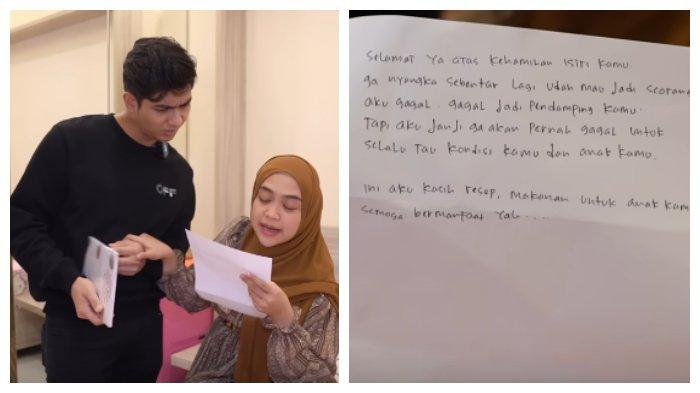 Selamat ya atas kehamilan istri kamu.
ga nyangka sebentar lagi udah mau jadi seorang
aku gagal. gagal jadi pendamping kamu.
Tapi aku janji ga akan pernah gagal untuk
selalu tau kondisi kamu dan anak kamu.
ini aku kasih resep, makanan untuk anak kam
semoga bermanfaat yah....